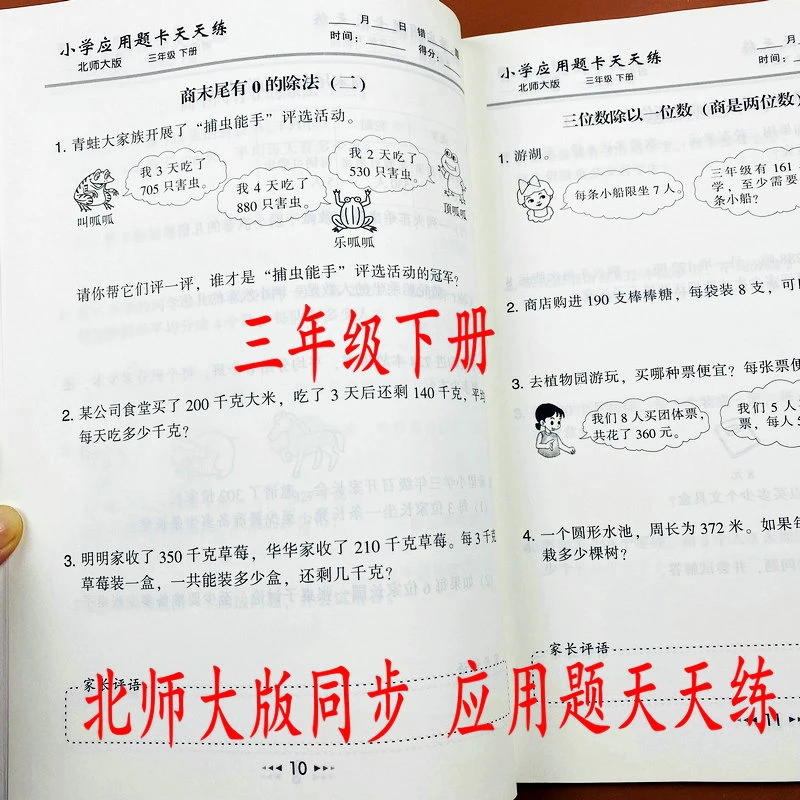 小学应用题卡天天练
北师大版 三年级 下册
____月____日 错____题
时间：____ 得分：____
商末尾有0的除法（二）
1. 青蛙大家族开展了“捕虫能手”评选活动。
我3天吃了
705只害虫。
我4天吃了
880只害虫。
我2天吃了
530只害虫。
叫呱呱
乐呱呱
顶呱呱
请你帮它们评一评，谁才是“捕虫能手”评选活动的冠军？
2. 某公司食堂买了200千克大米，吃了3天后还剩140千克，平均
每天吃多少千克？
3. 明明家收了350千克草莓，华华家收了210千克草莓。每3千克
草莓装一盒，一共能装多少盒，还剩几千克？
家长评语
10
小学应用题卡天天练
北师大版 三年级 下册
____月
时间：
三位数除以一位数（商是两位数）
1. 游湖。
每条小船限坐7人。
三年级有161
学，至少需要
条小船？
2. 商店购进190支棒棒糖，每袋装8支，可
3. 去植物园游玩，买哪种票便宜？每张票便
我们8人买团体票，
共花了360元。
我们5人
票，每人5
4. 一个圆形水池，周长为372米。如果每
栽多少棵树？
家长评语
11
三年级下册
北师大版同步 应用题天天练